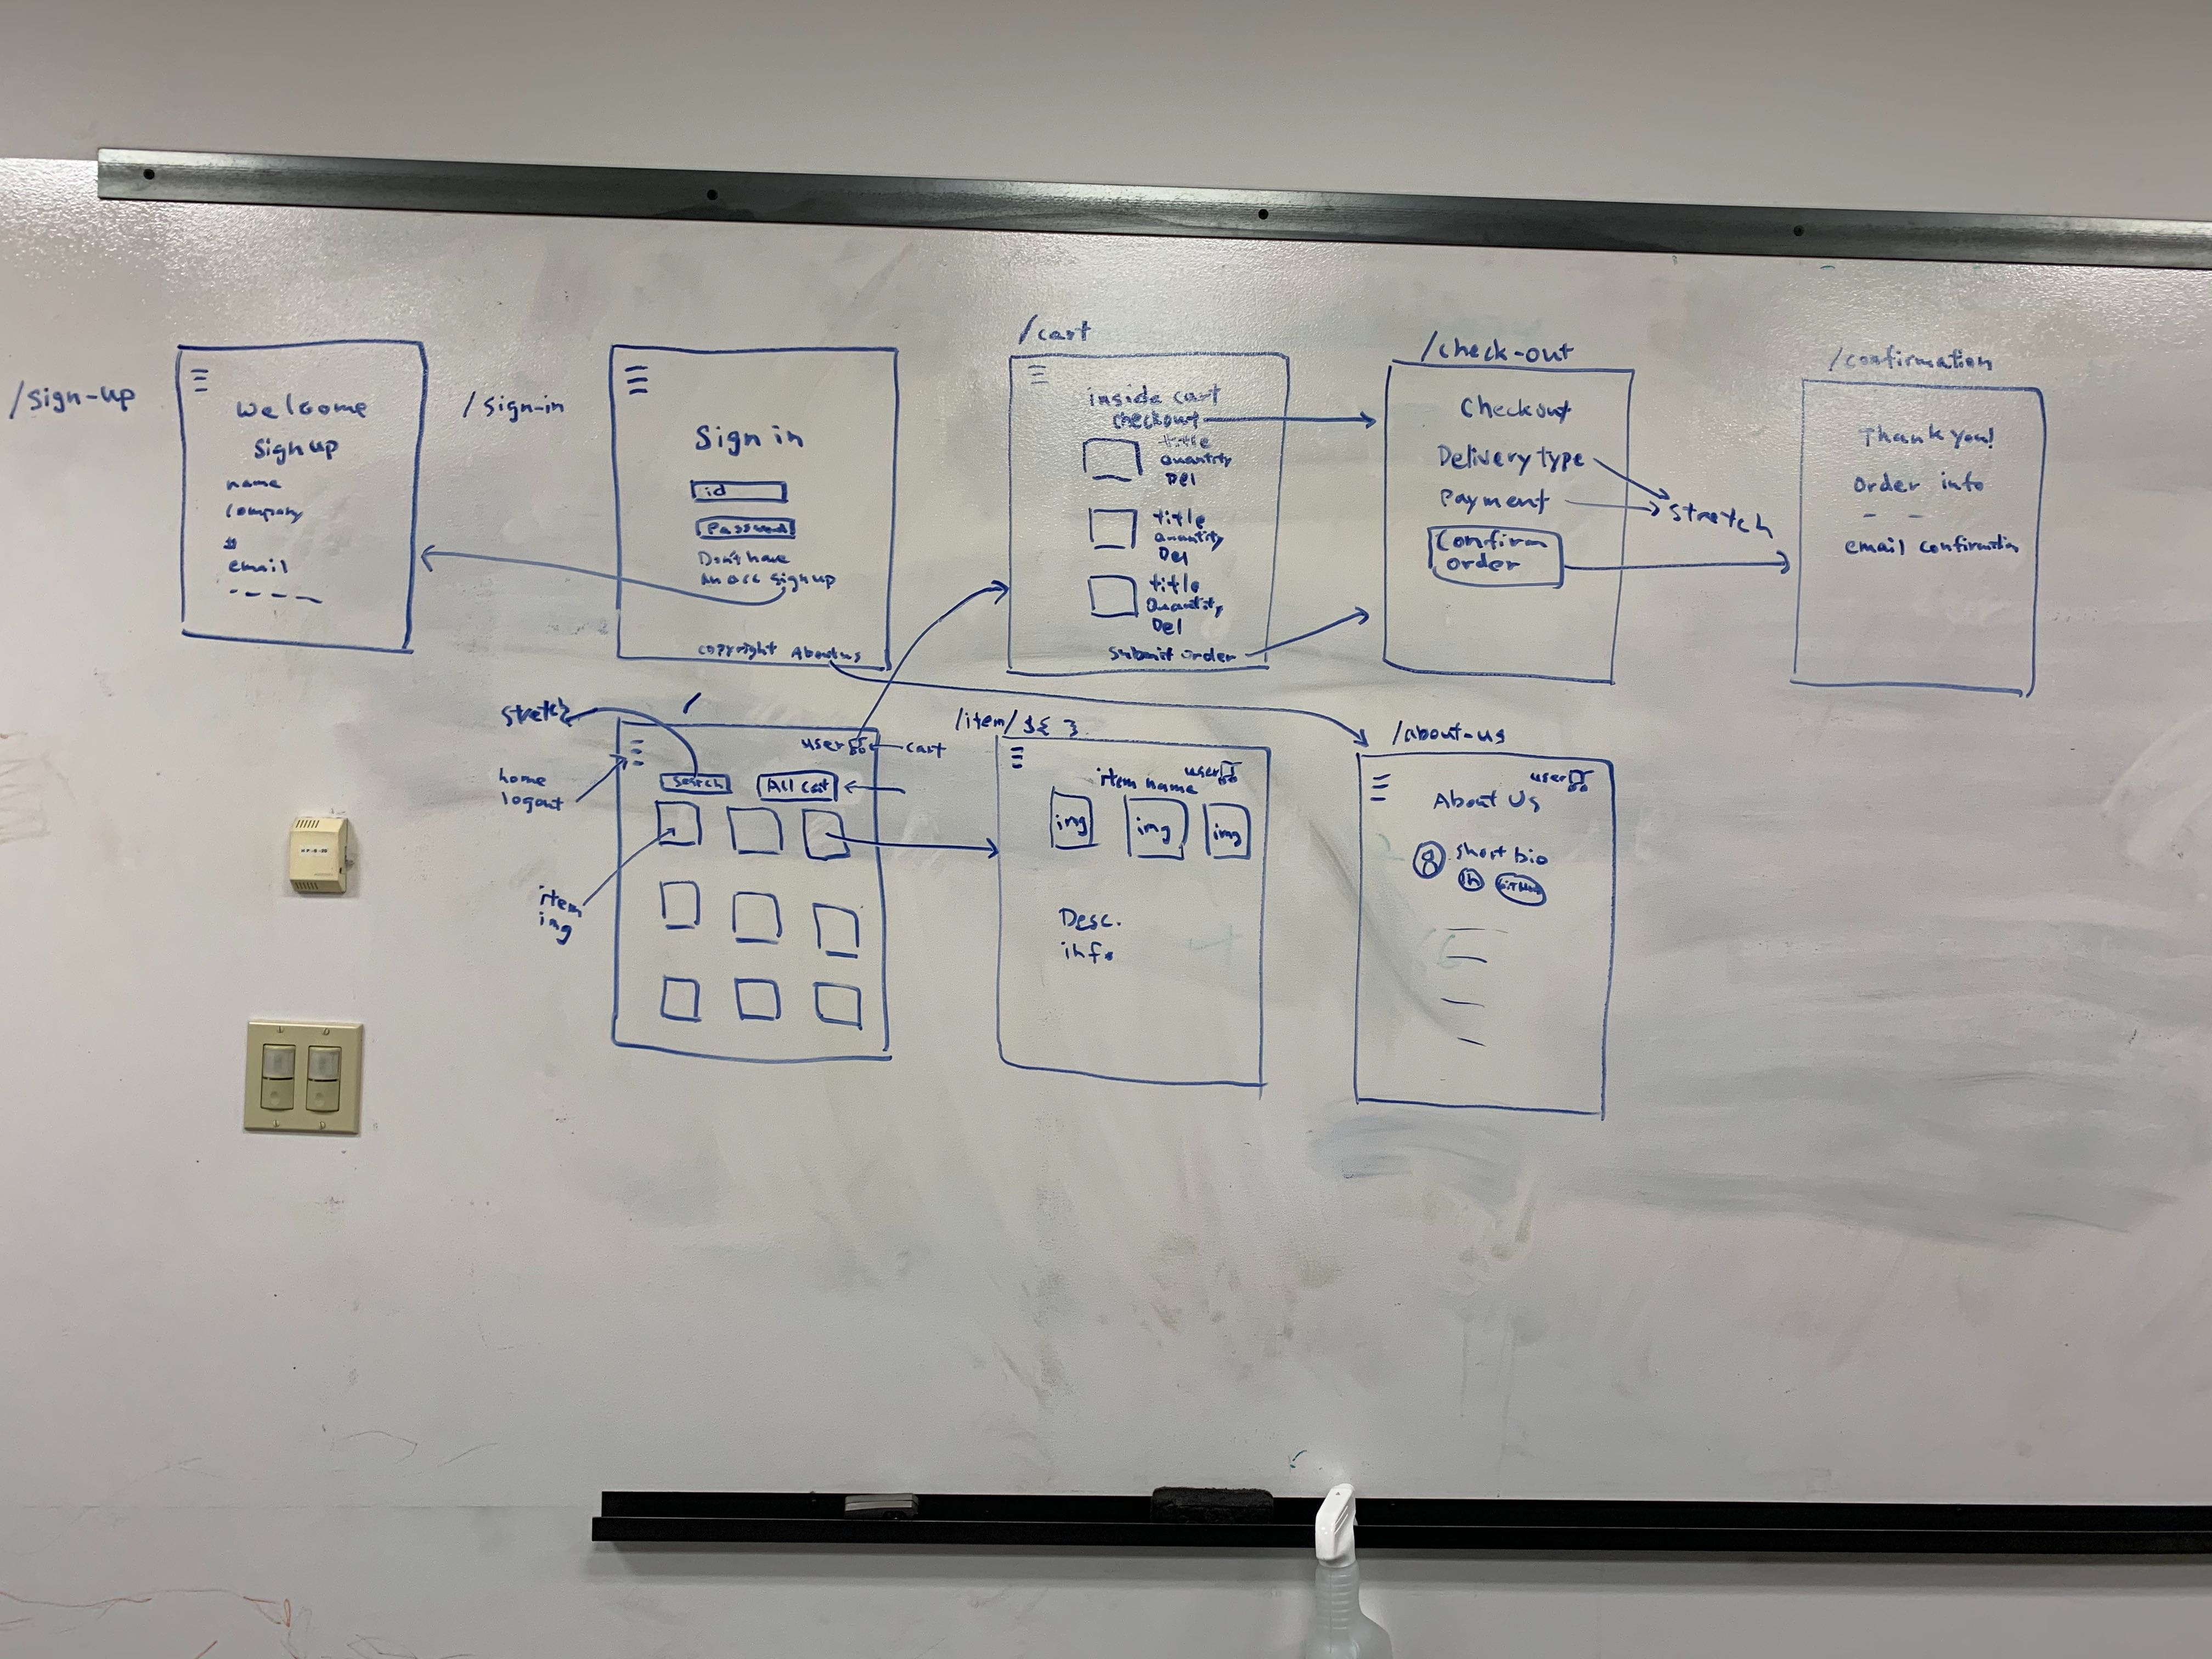 /sign-up
Welcome
Sign up
name
company
#
email
/sign-in
Sign in
id
Password
Don't have
An acc sign up
copyright About us
/cart
inside cart
checkout
title
Quantity
Del
title
Quantity
Del
title
Quantity
Del
Submit order
/check-out
Checkout
Delivery type
Payment
Confirm
order
stretch
/confirmation
Thank you!
Order info
email confirmation
stretch
/
user
cart
home
logout
Search
item
img
/item/${ }
user
item name
img
img
img
Desc.
info
/about-us
user
About Us
short bio
in